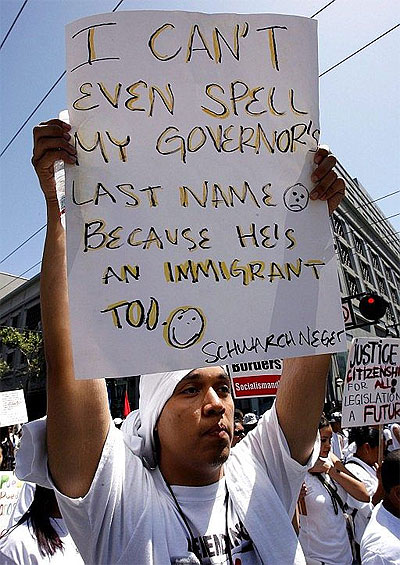 I CAN'T
EVEN SPELL
MY GOVERNOR'S
LAST NAME
BECAUSE HE'S
AN IMMIGRANT
TOO.
SCHWARCHNEGER
Borders
Socialism
JUSTICE
CITIZENSHIP
FOR ALL
LEGISLATION
A FUTURE